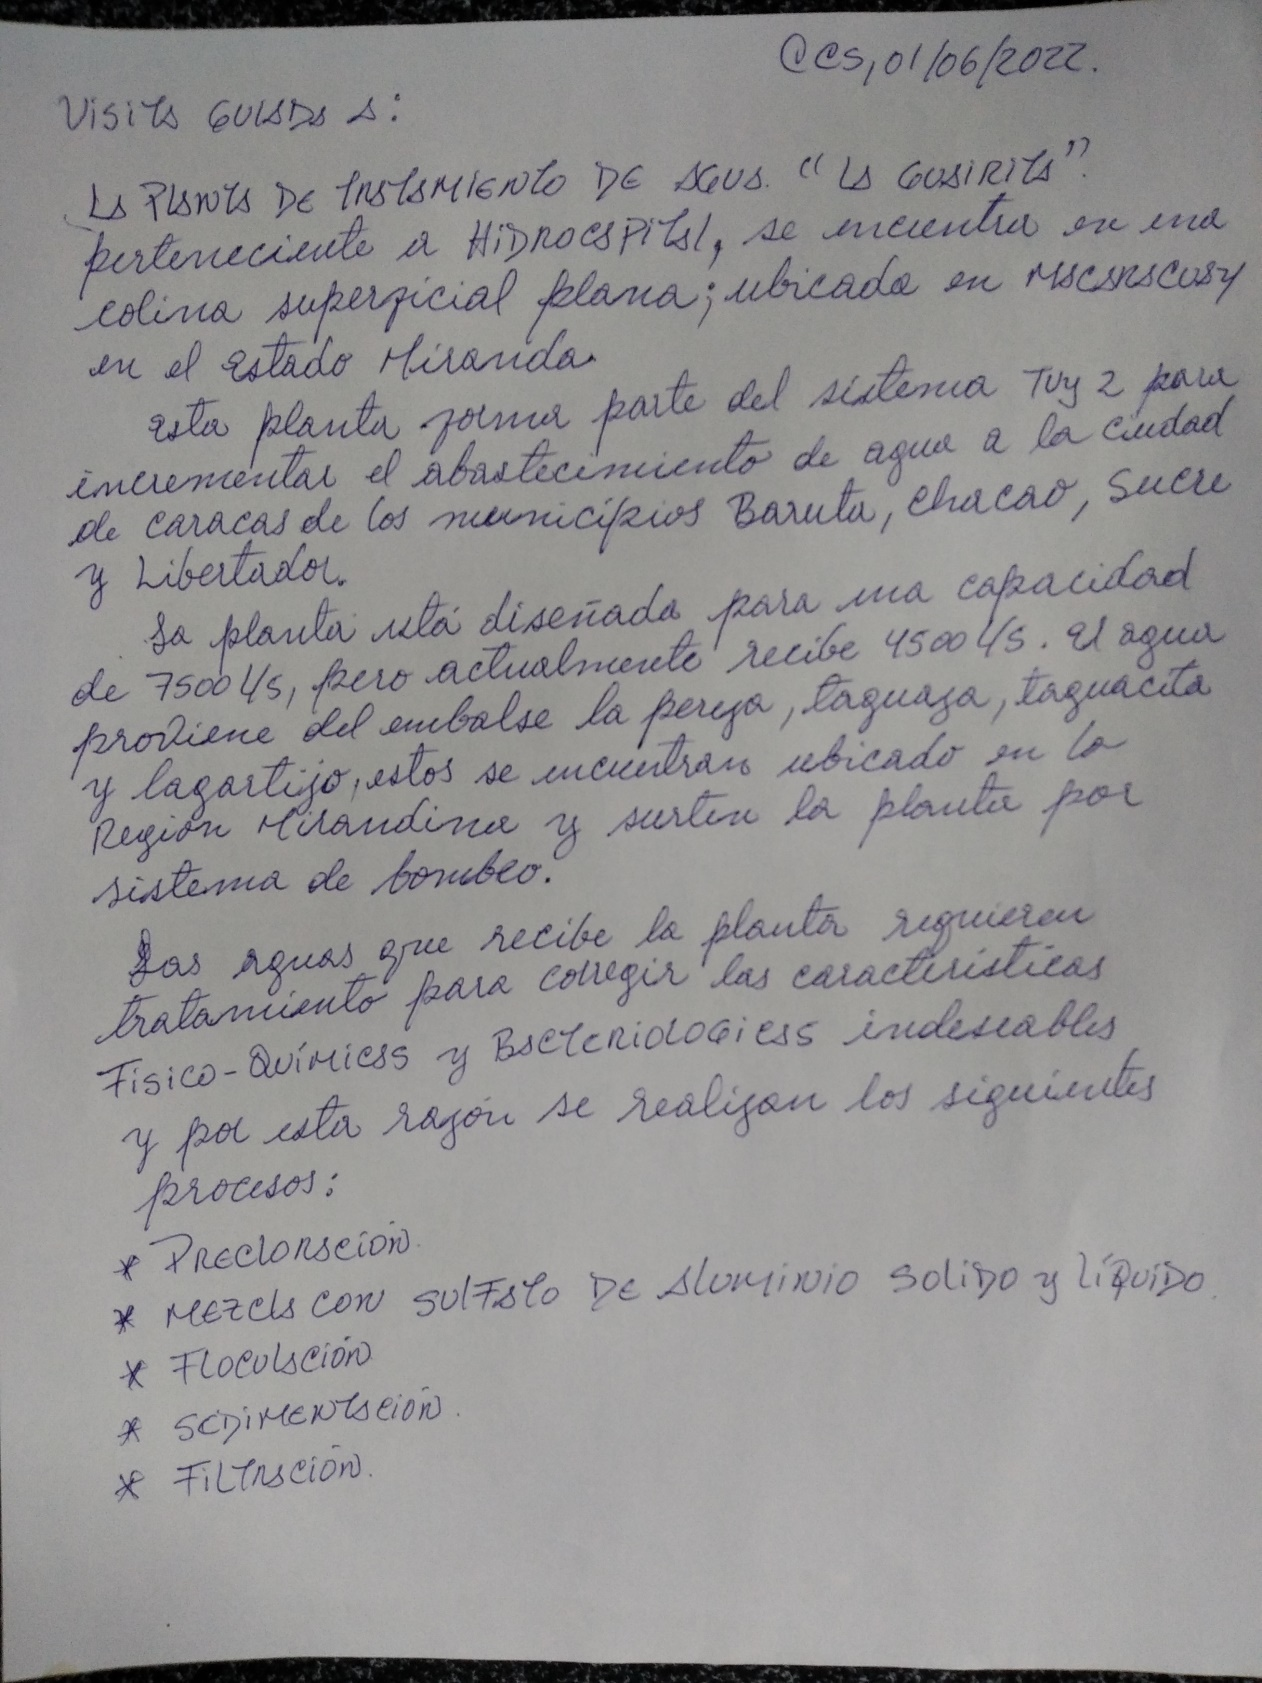 CCS, 01/06/2022.
Visita guiada a:
La Planta de tratamiento de agua. "La Guairita".
perteneciente a Hidrocapital, se encuentra en una
colina superficial plana; ubicada en Macaracuay
en el Estado Miranda.
Esta planta forma parte del sistema Tuy 2 para
incrementar el abastecimiento de agua a la ciudad
de caracas de los municipios Baruta, chacao, Sucre
y Libertador.
La planta está diseñada para una capacidad
de 7500 l/s, pero actualmente recibe 4500 l/s. El agua
proviene del embalse la pereza, taguaza, taguacita
y lagartijo, estos se encuentran ubicado en la
Región Mirandina y surten la planta por
sistema de bombeo.
Las aguas que recibe la planta requieren
tratamiento para corregir las características
Físico-Químicas y Bacteriologicas indeseables
y por esta razón se realizan los siguientes
procesos:
* Precloración.
* Mezcla con sulfato de aluminio solido y líquido.
* Floculación
* Sedimentación.
* Filtración.